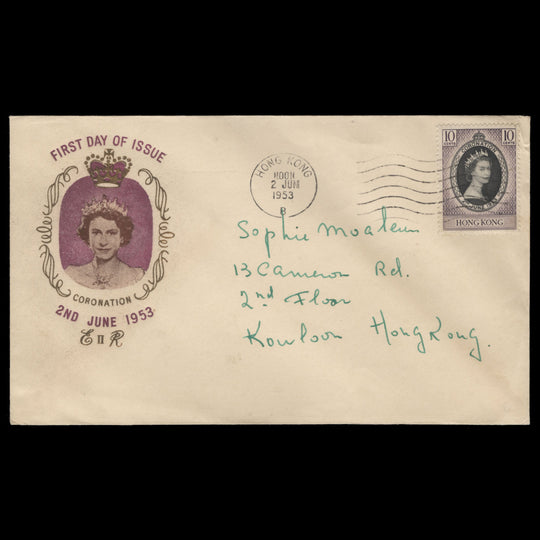 FIRST DAY OF ISSUE
CORONATION
2ND JUNE 1953
E II R
HONG KONG
NOON
2 JUN
1953
B
10 10
CORONATION
HONG KONG
Sophie
13 Cameron Rd.
2nd Floor
Kowloon HongKong.